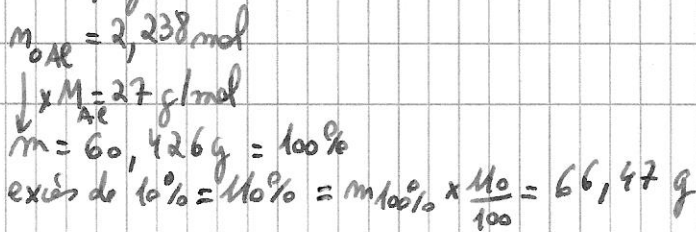 n₀ Al = 2,238 mol
↓ × M Al = 27 g/mol
m = 60,426 g = 100%
excès de 10% = 110% = m 100% × 110/100 = 66,47 g